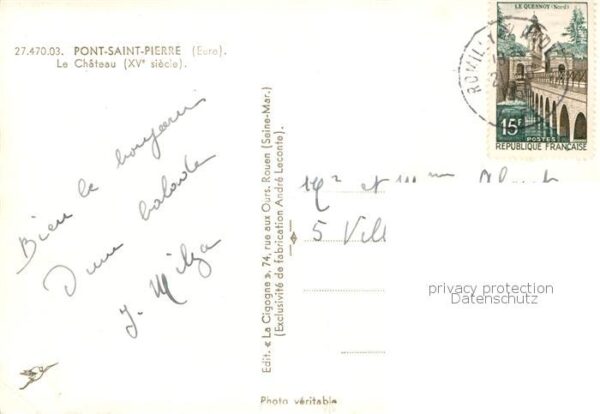 27.470.03. PONT-SAINT-PIERRE (Eure).
Le Château (XVᵉ siècle).
Bien le bonjour
D'une balade
J.
Edit. « La Cigogne », 74, rue aux Ours, Rouen (Seine-Mar.)
(Exclusivité de fabrication André Leconte).
Photo véritable
LE QUESNOY (Nord)
15F
POSTES
REPUBLIQUE FRANÇAISE
et
5 Vill
privacy protection
Datenschutz